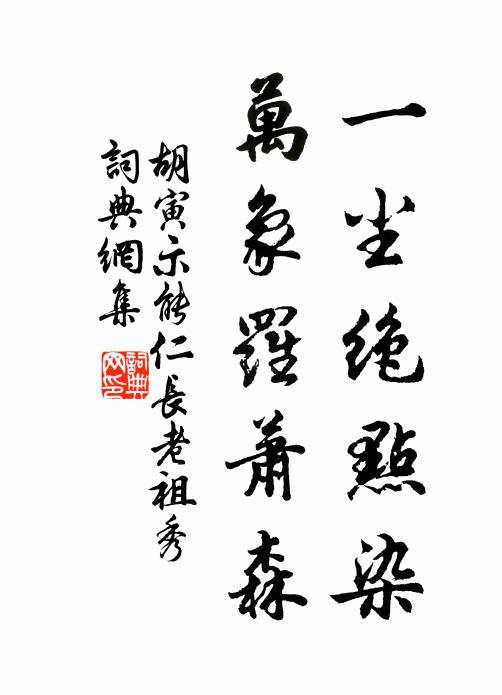 一尘绝點染
萬象羅蕭森
胡寅示能仁長老祖秀
詞典網集
詞典网印